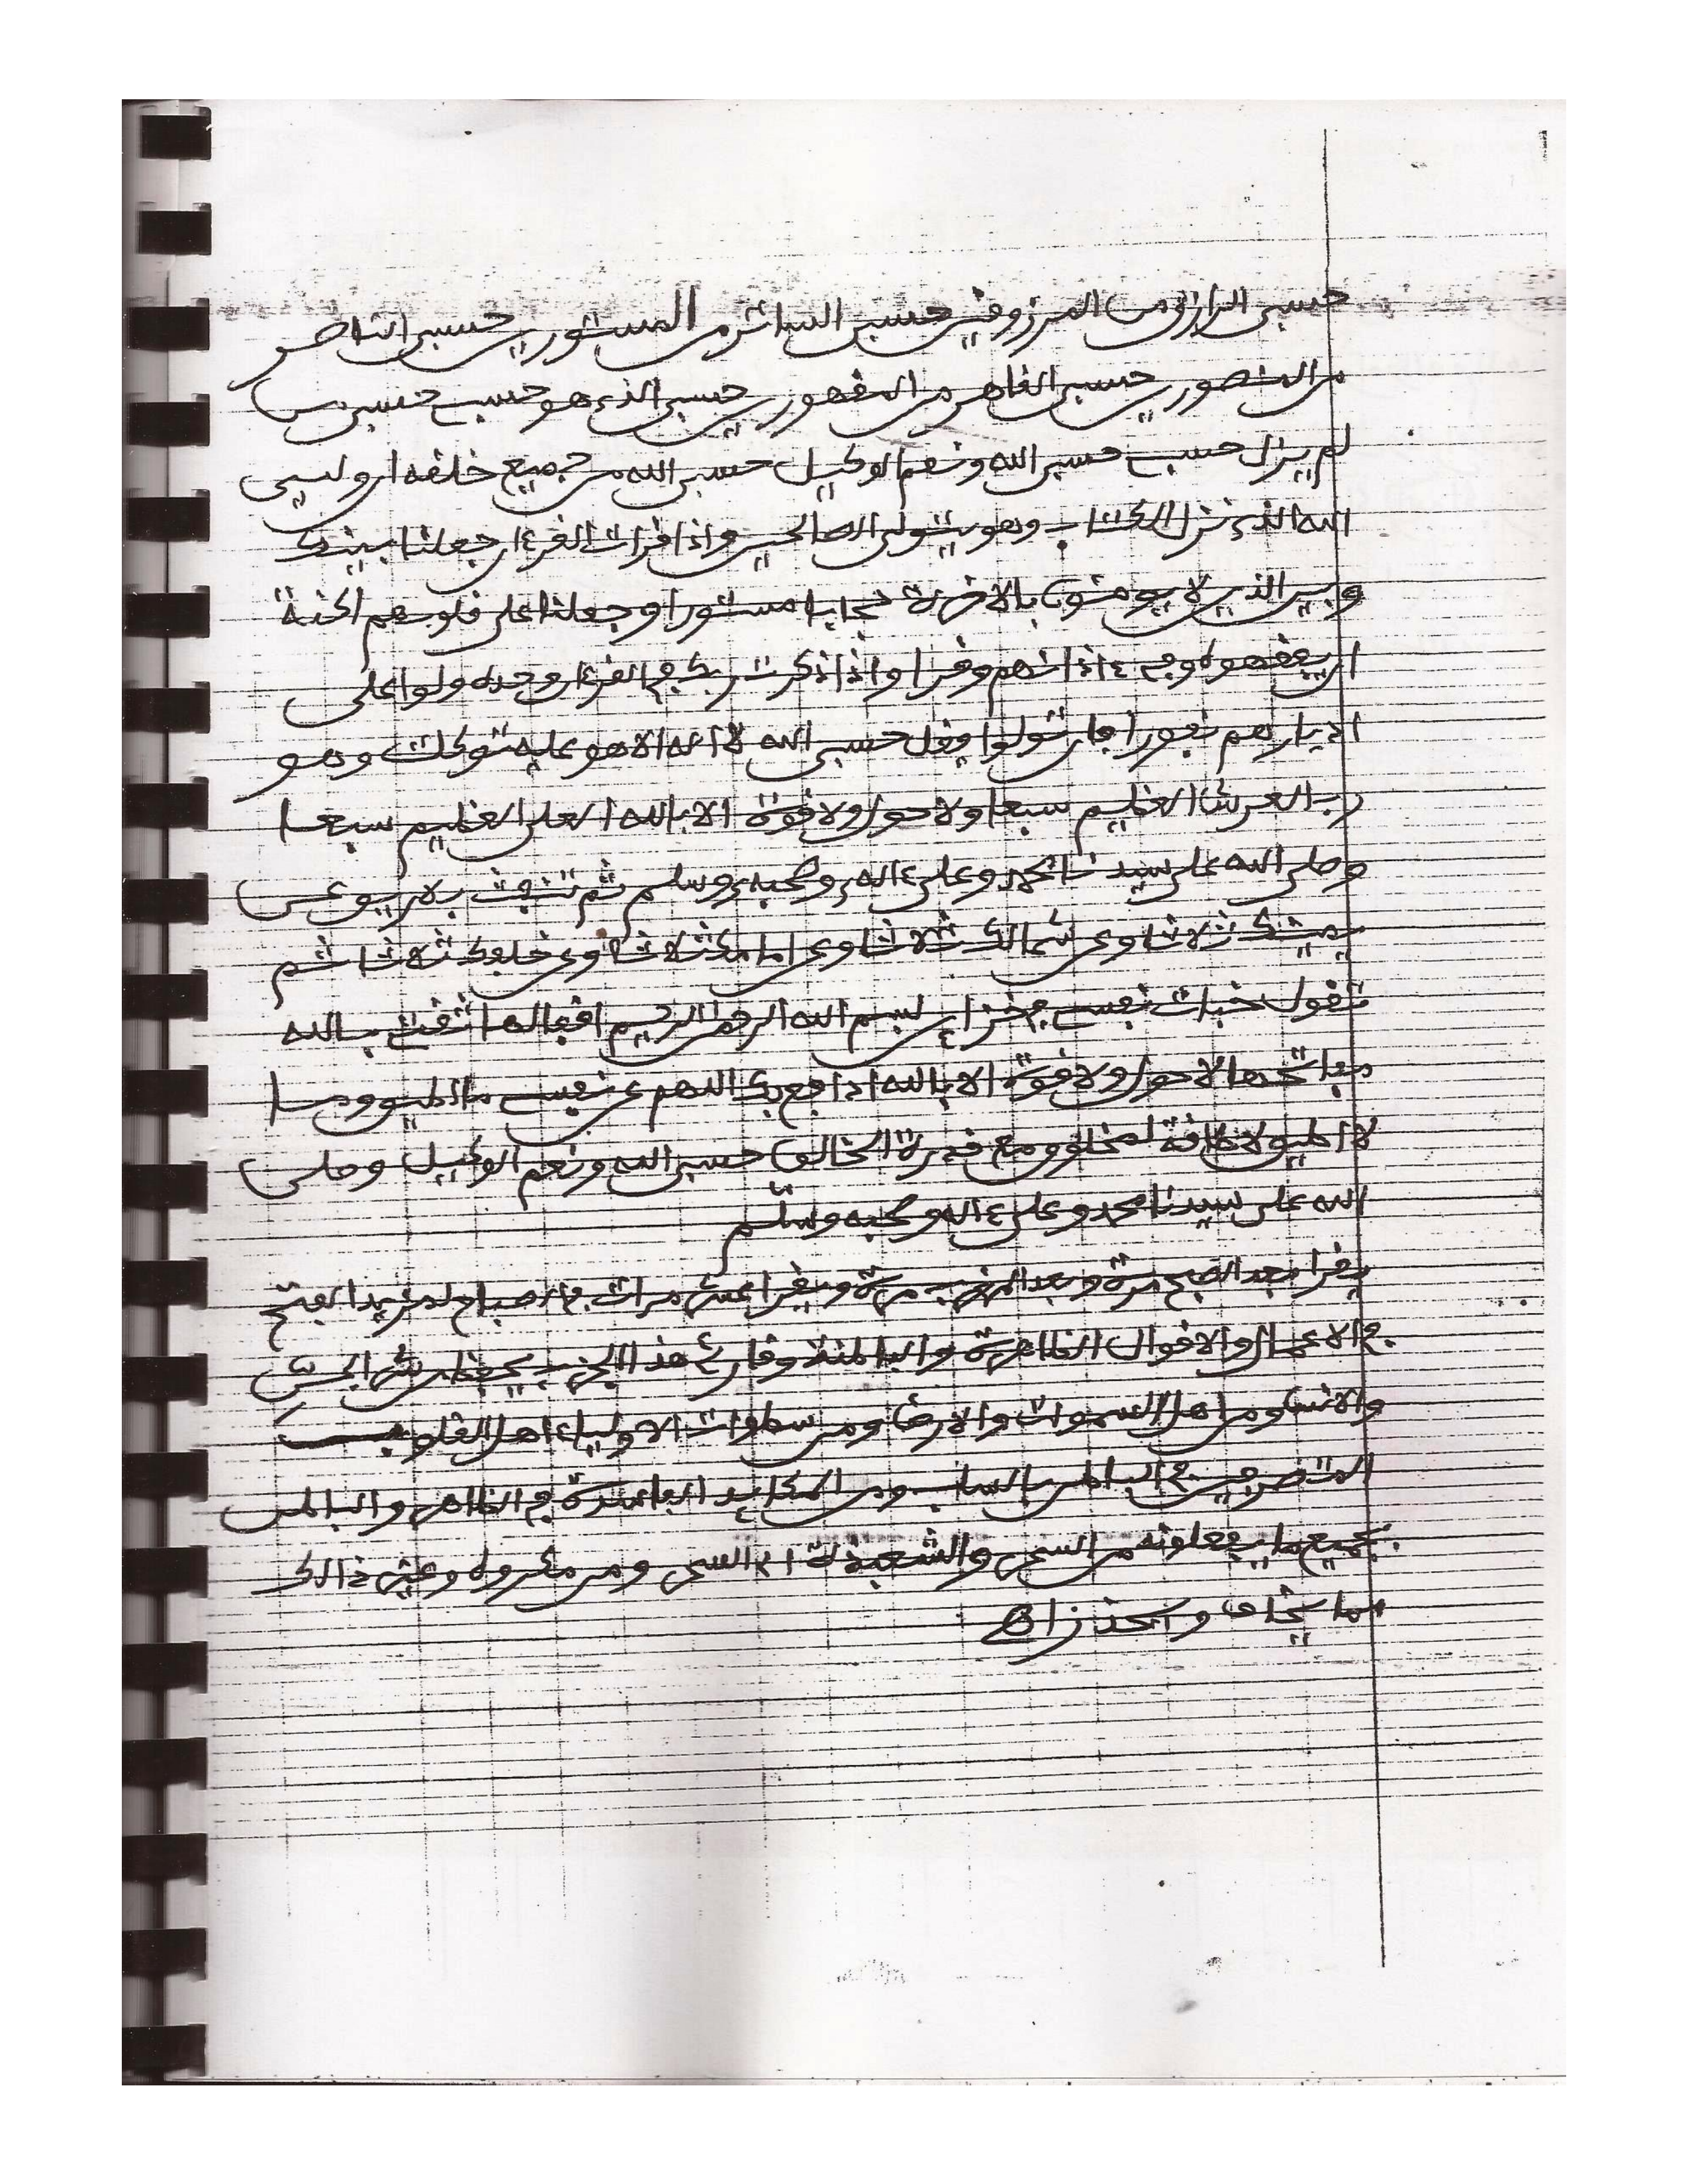 حسبي الرازق من المرزوقين حسبي الساتر من المستورين حسبي الناصر
من المنصورين حسبي القاهر من المقهورين حسبي الذي هو حسبي حسبي من
لم يزل حسبي حسبي الله ونعم الوكيل حسبي الله من جميع خلقه ان وليي
الله الذي نزل الكتاب وهو يتولى الصالحين واذا قرات القرءان جعلنا بينك
وبين الذين لا يومنون بالاخرة حجابا مستورا وجعلنا على قلوبهم اكنة
ان يفقهوه وفي ءاذانهم وقرا واذا ذكرت ربك في القرءان وحده ولوا على
ادبارهم نفورا فان تولوا فقل حسبي الله لا اله الا هو عليه توكلت وهو
رب العرش العظيم سبعا ولا حول ولا قوة الا بالله العلي العظيم سبعا
وصلى الله على سيدنا محمد وعلى ءاله وصحبه وسلم ثم تنفث بلا ريق عن
يمينك ثلاثا وعن شمالك ثلاثا وعن امامك ثلاثا وعن خلفك ثلاثا ثم
تقول خبات نفسي في خزاين بسم الله الرحمن الرحيم اقفالها ثقتي بالله
مفاتحها لا حول ولا قوة الا بالله ادافع بك اللهم عن نفسي ما اطيق وما
لا اطيق لا طاقة لمخلوق مع قدرة الخالق حسبي الله ونعم الوكيل وصلى
الله على سيدنا محمد وعلى ءاله وصحبه وسلم
يقرا بعد الصبح مرة وبعد المغرب مرة ويقرا عشر مرات في الصباح لمزيد الفتح
في الاعمال والاقوال الظاهرة والباطنة وقارئ هذا الحزب يحفظ من شر الجن
والانس ومن اهل السموات والارض ومن سطوات الاولياء اهل القلوب
المتصرفين في الباطن بالسلب ومن المكايد الفاسدة في الظاهر والباطن
بجميع ما يفعلونه من السحر والشعبذة السحر ومن مكروه وغير ذالك
مما يخاف ويحذر انتهى